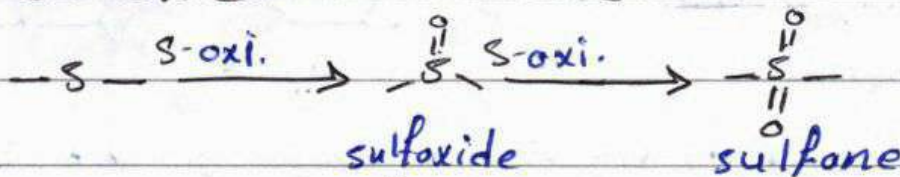 O O
-S- S-oxi. S S-oxi. -S-
O
sulfoxide sulfone